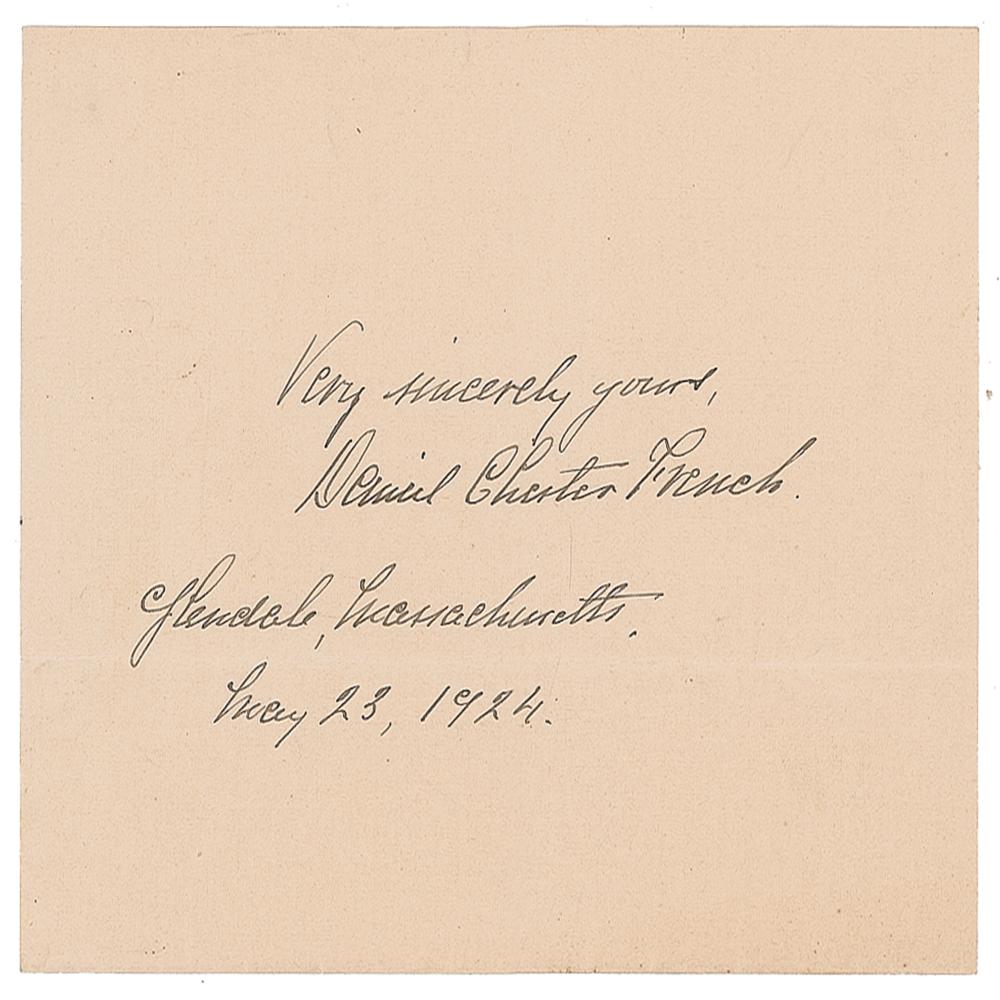 Very sincerely yours,
Daniel Chester French.
Glendale, Massachusetts.
May 23, 1924.